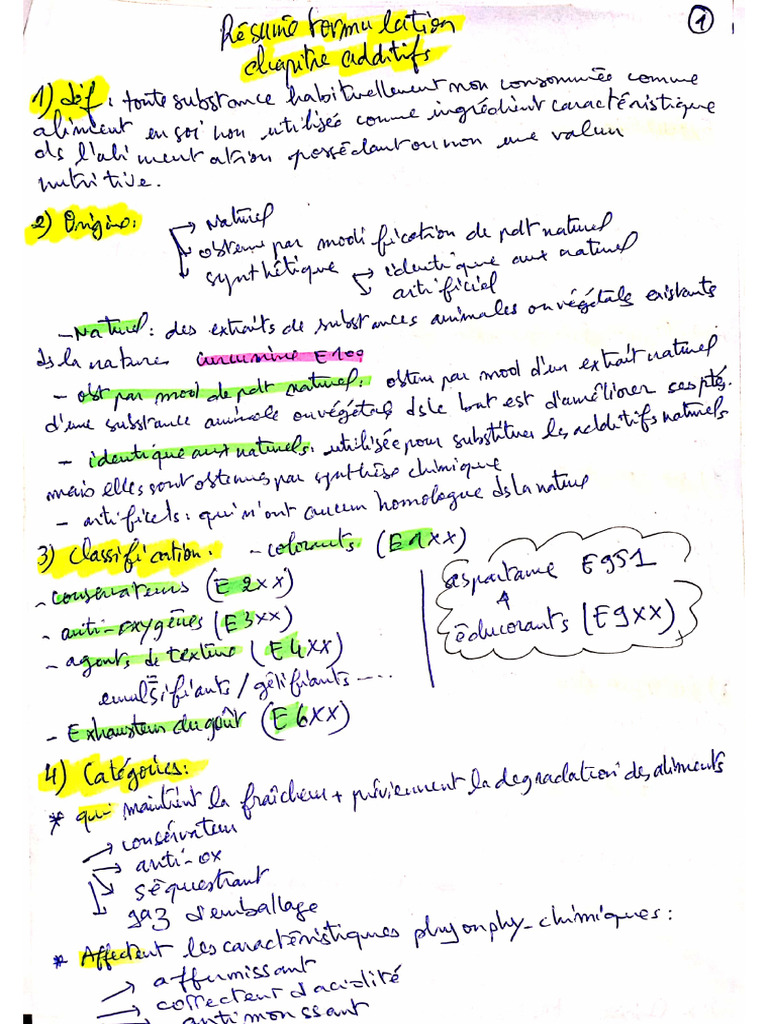 Résumé formulation
chapitre additifs
1
1) déf : toute substance habituellement non consommée comme
aliment en soi non utilisée comme ingrédient caractéristique
ds l'alimentation possédant ou non une valeur
nutritive.
2) Origine:
→ Naturel
→ obtenu par modification de pdt naturel
→ synthétique → identique aux naturel
↘ artificiel
- Naturel : des extraits de substances animales ou végétale existants
ds la nature curcumine E100
- obt par mod de pdt naturel : obtenu par mod d'un extrait naturel
d'une substance animale ou végétal ds le but est d'améliorer ses ptés.
- identique aux naturels : utilisée pour substituer les additifs naturels
mais elles sont obtenues par synthèse chimique
- artificels : qui n'ont aucun homologue ds la nature
3) Classification : - colorants (E1xx)
- conservateurs (E2xx)
- anti-oxygènes (E3xx)
- agents de texture (E4xx)
emulsifiants / gélifiants ....
- Exhausteur du goût (E6xx)
aspartame E951
édulcorants (E9xx)
4) Catégories :
* qui maintient la fraîcheur + préviennent la degradation des aliments
→ consérvateur
→ anti-ox
→ séquestrant
→ gaz d'emballage
* Affectent les caractéristiques physico-chimiques :
→ affermissant
→ correcteur d'acidité
→ antimoussant